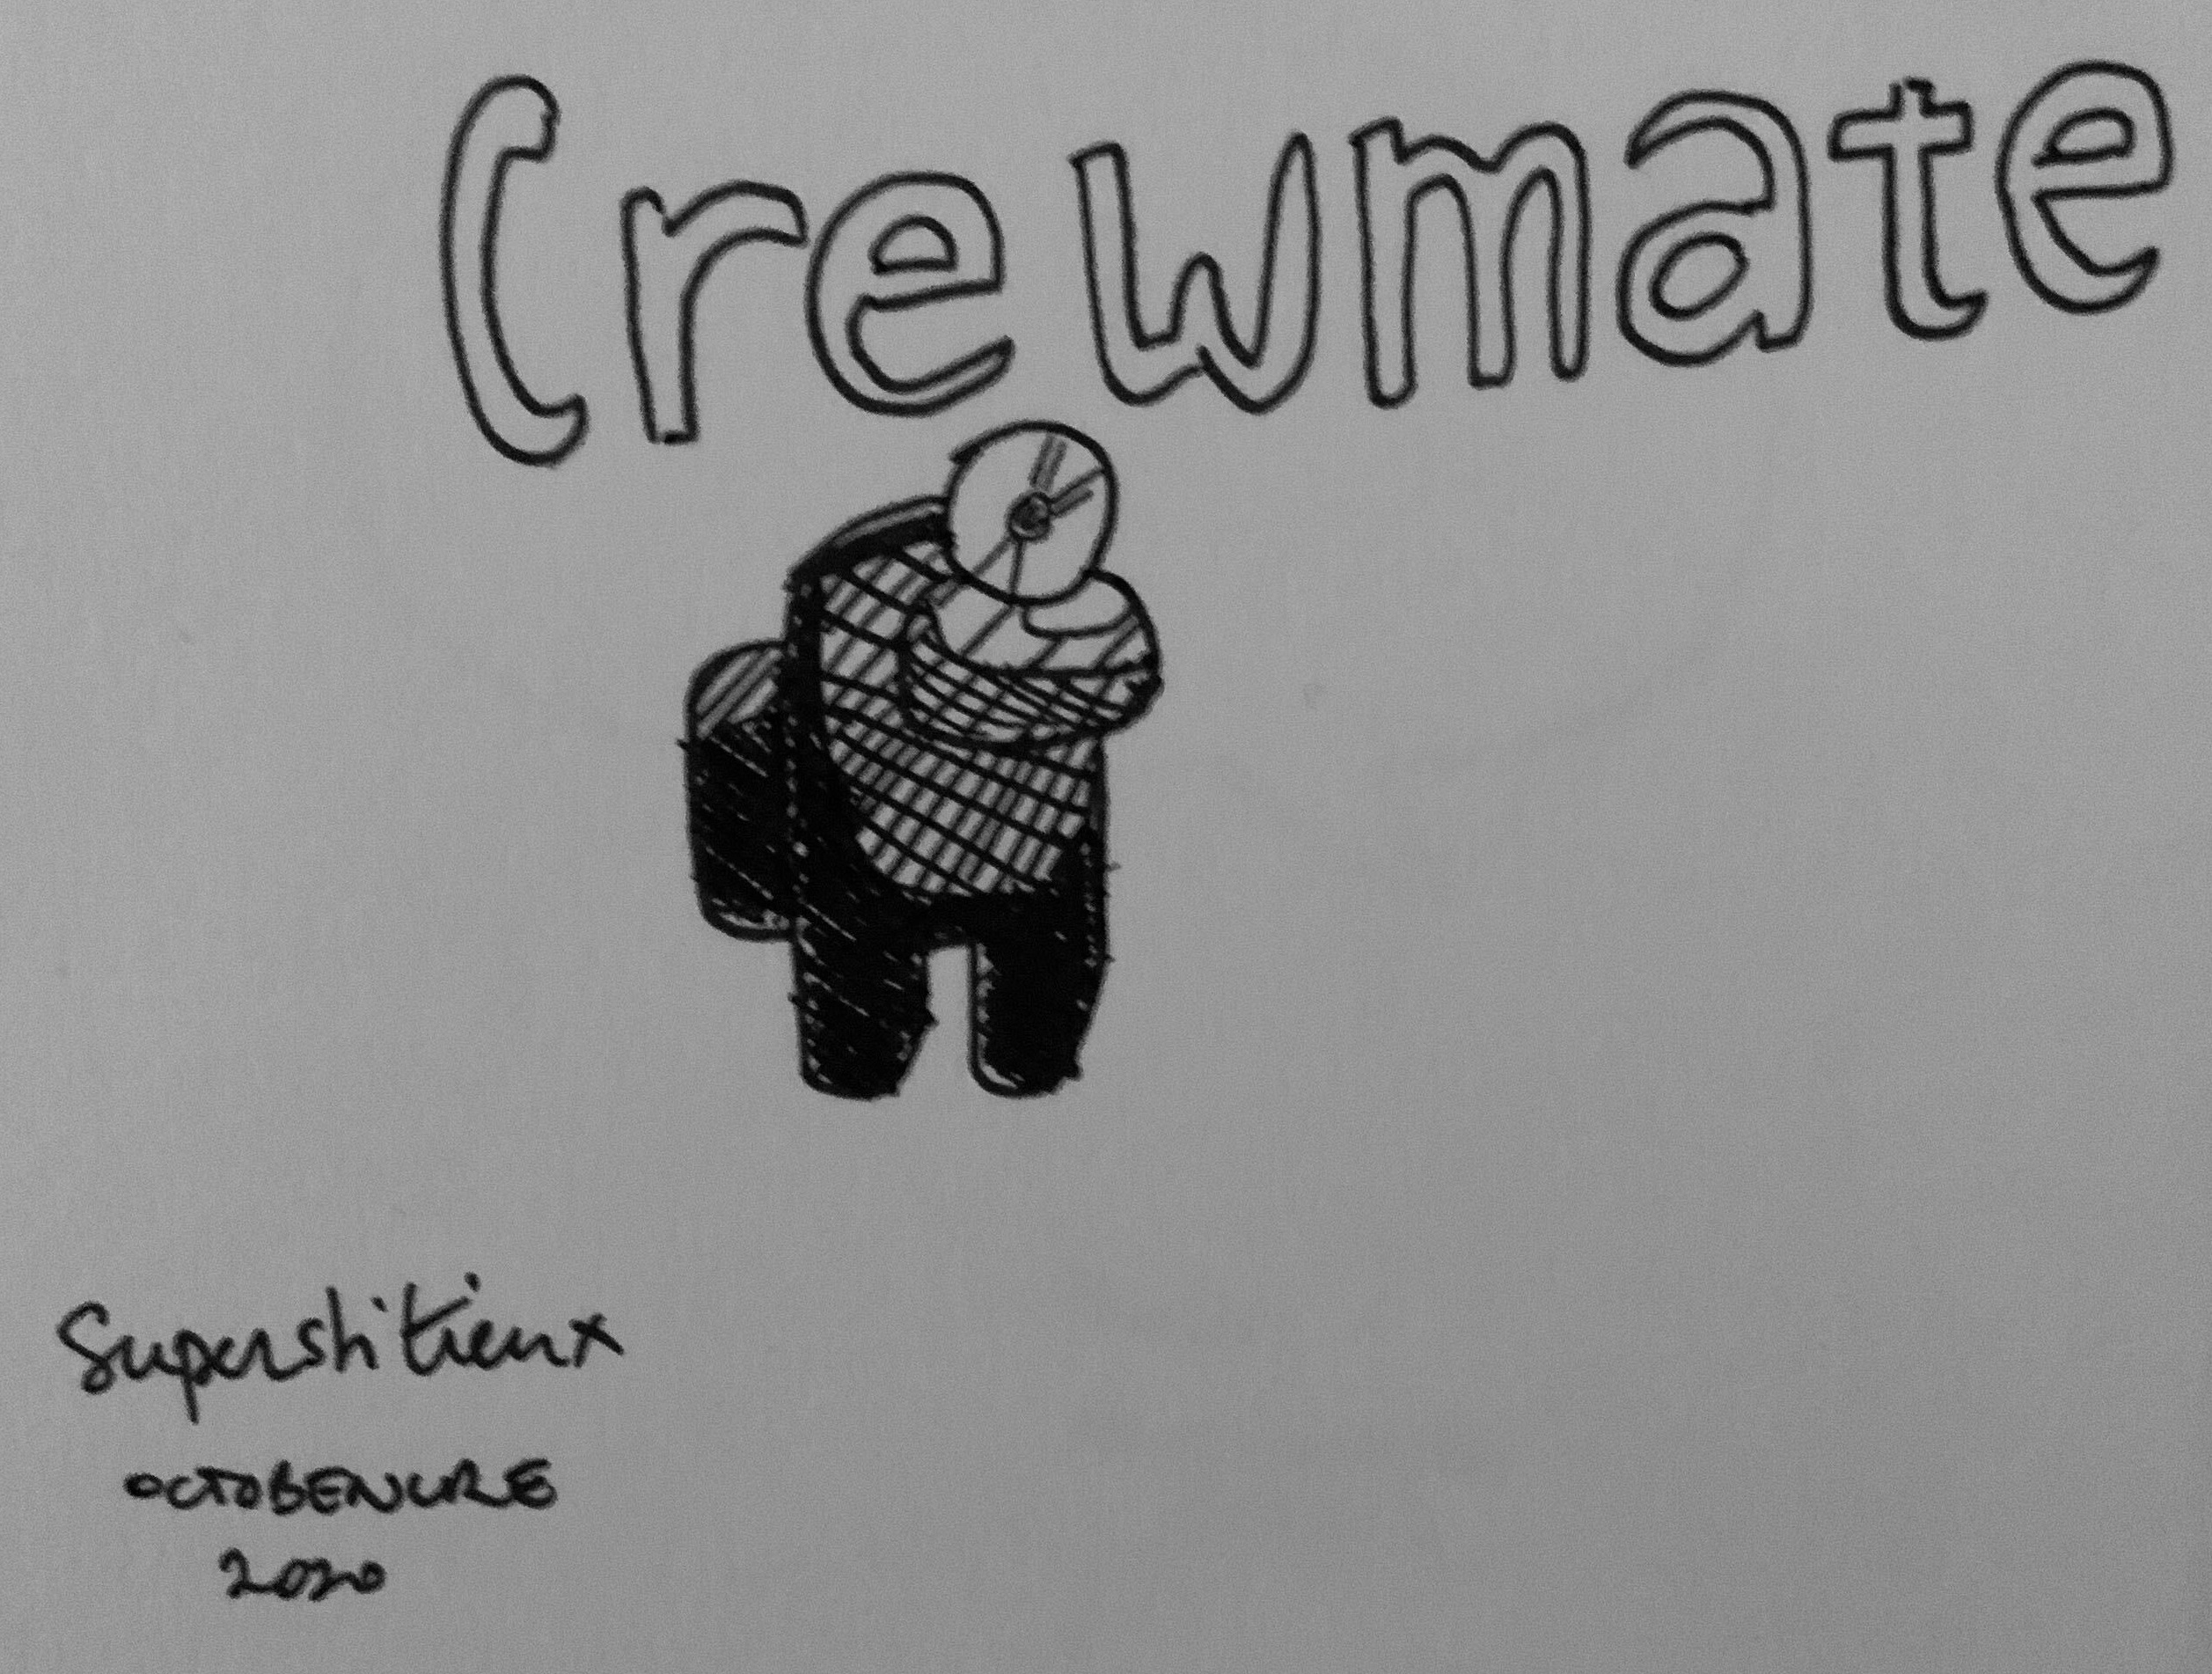 Crewmate
Superstitieux
OCTOBENCRE
2020